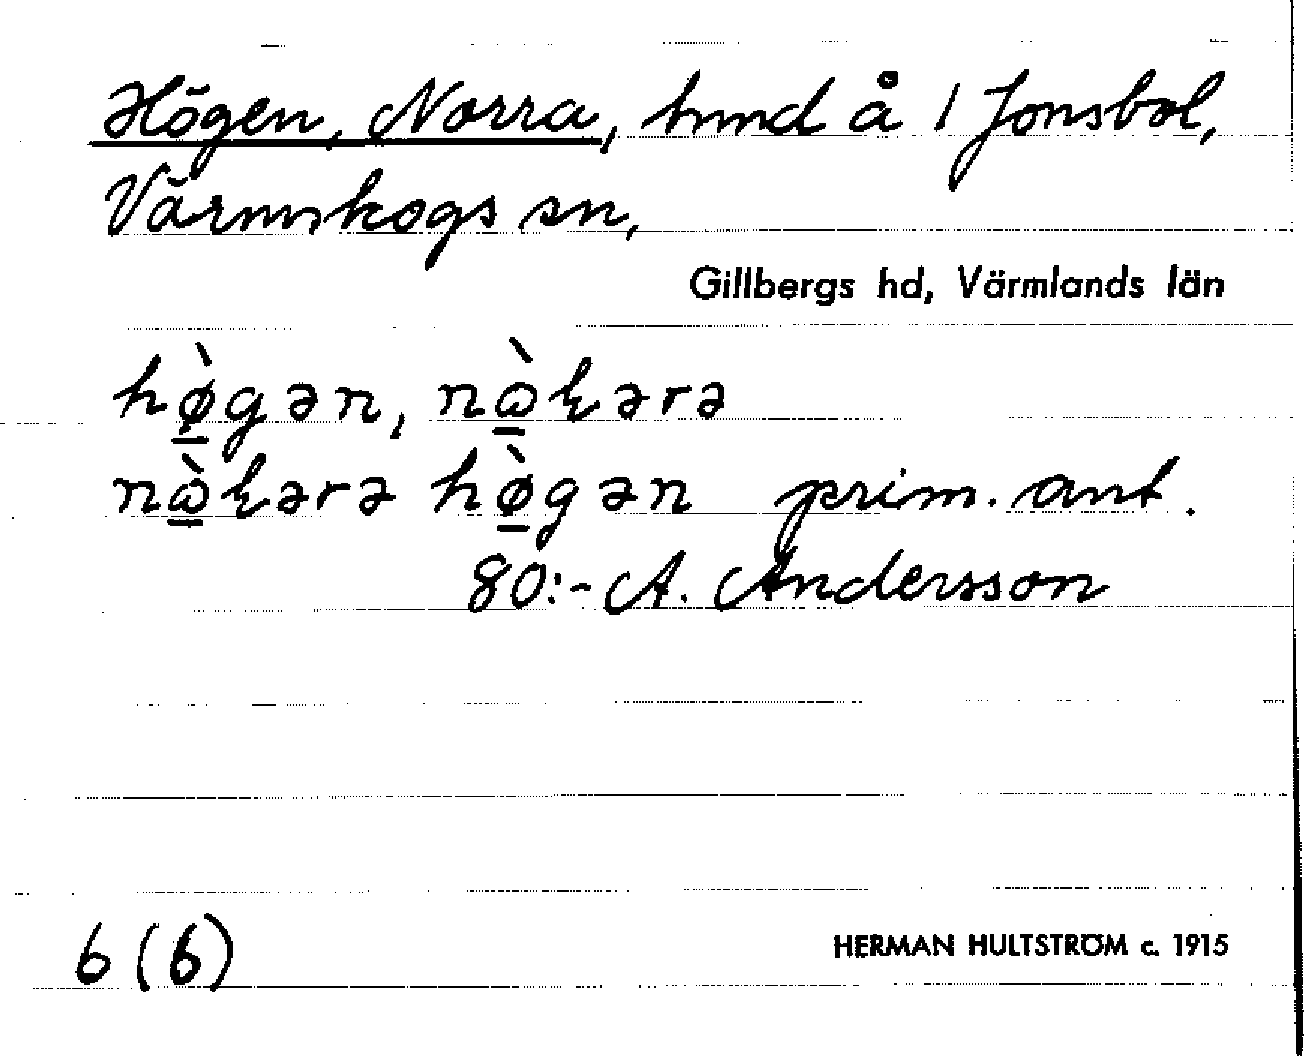 Högen, Norra, hmd å 1 Jonsbol,
Värmskogs sn,
Gillbergs hd, Värmlands län
prim. ant.
80:- A. Andersson
6 (6)
HERMAN HULTSTRÖM c. 1915